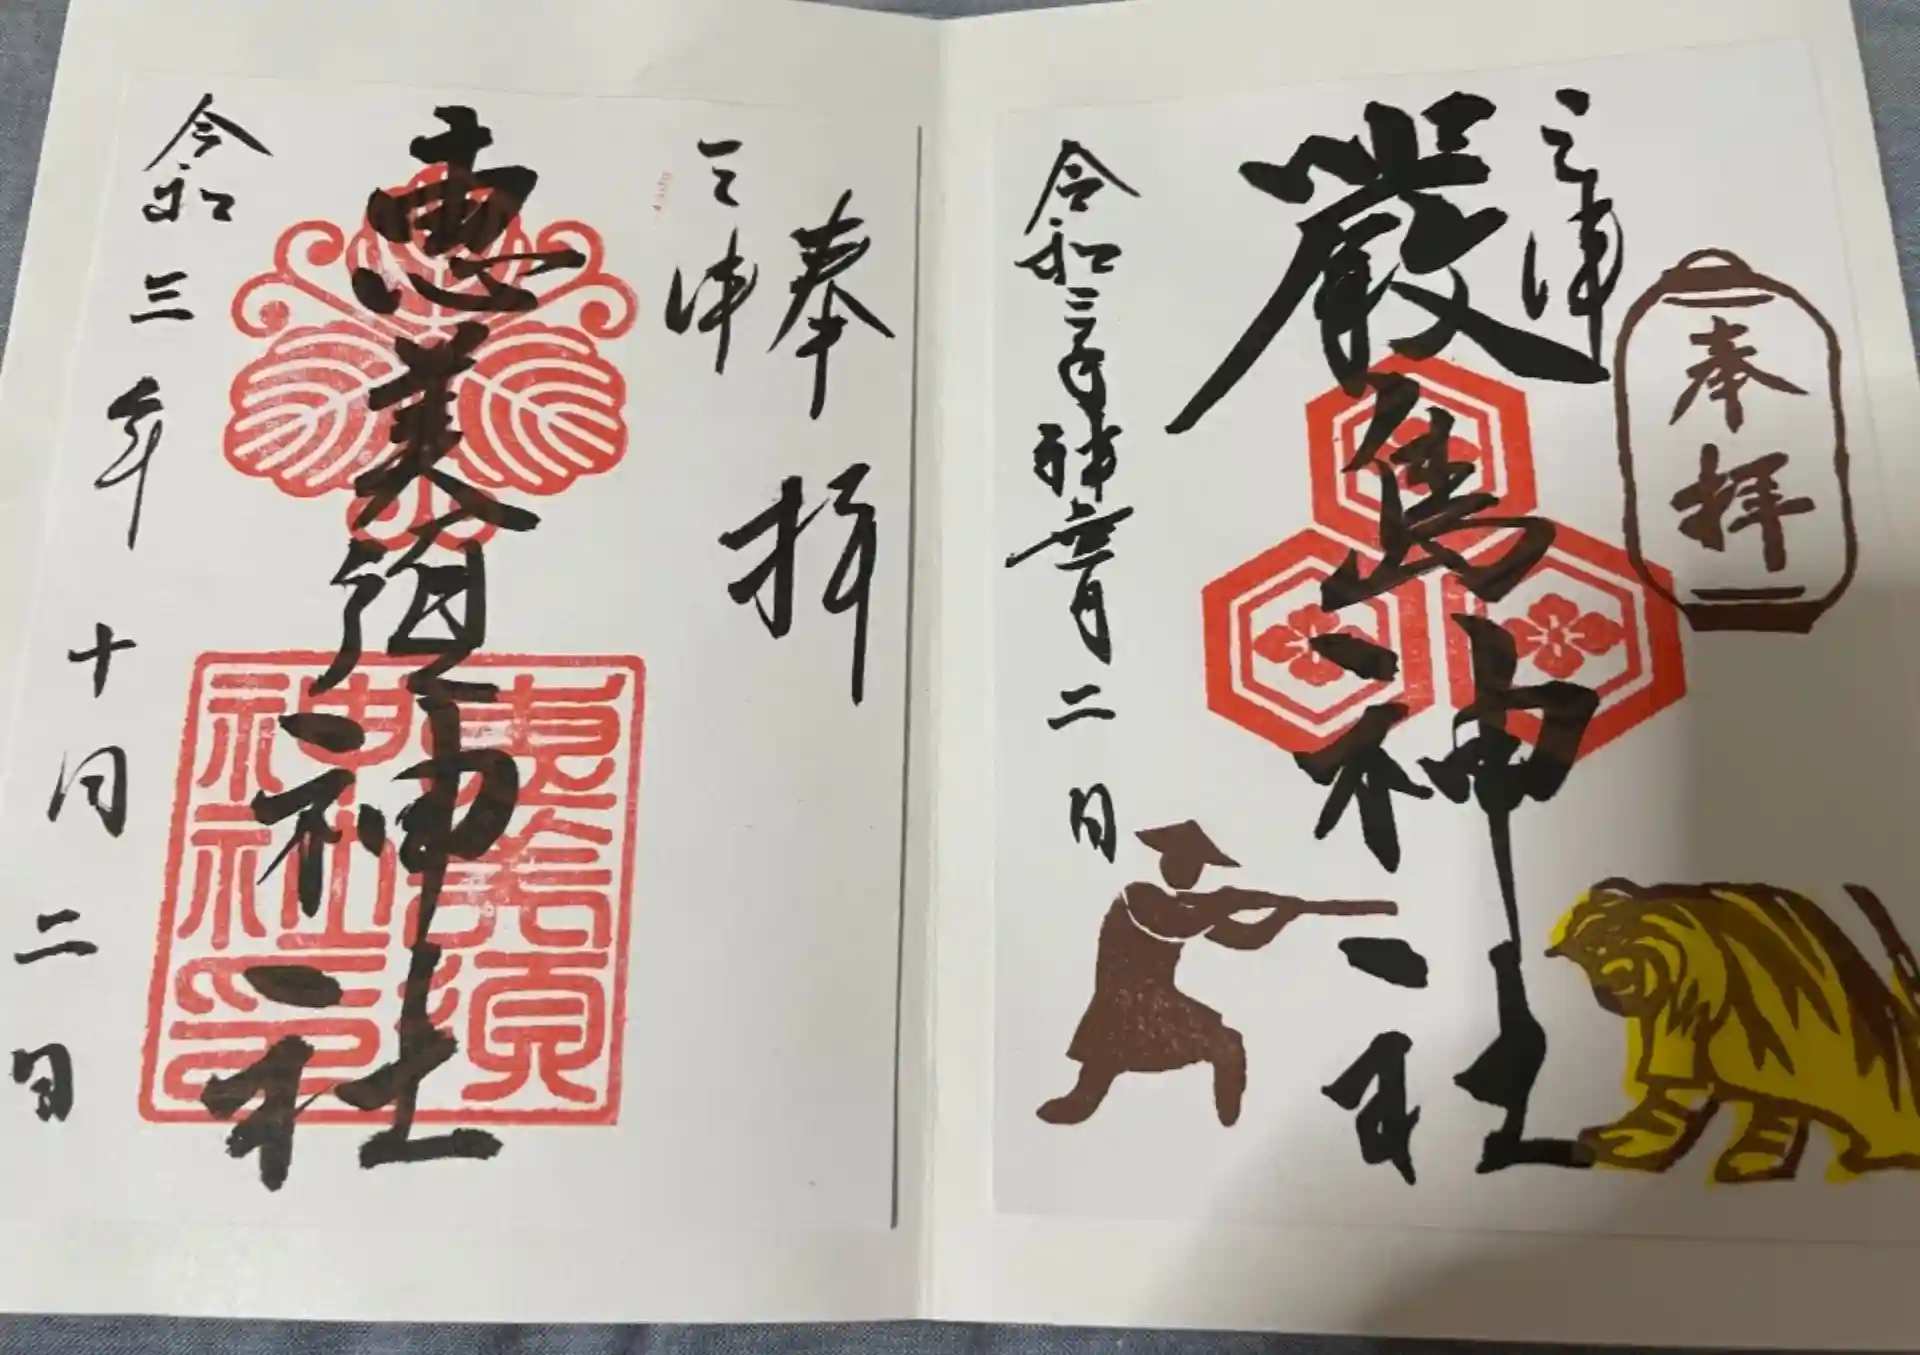 奉拝
三津
嚴島神社
令和三年神無月二日
奉拝
三津
恵美須神社
令和三年十月二日
恵美須
神社印